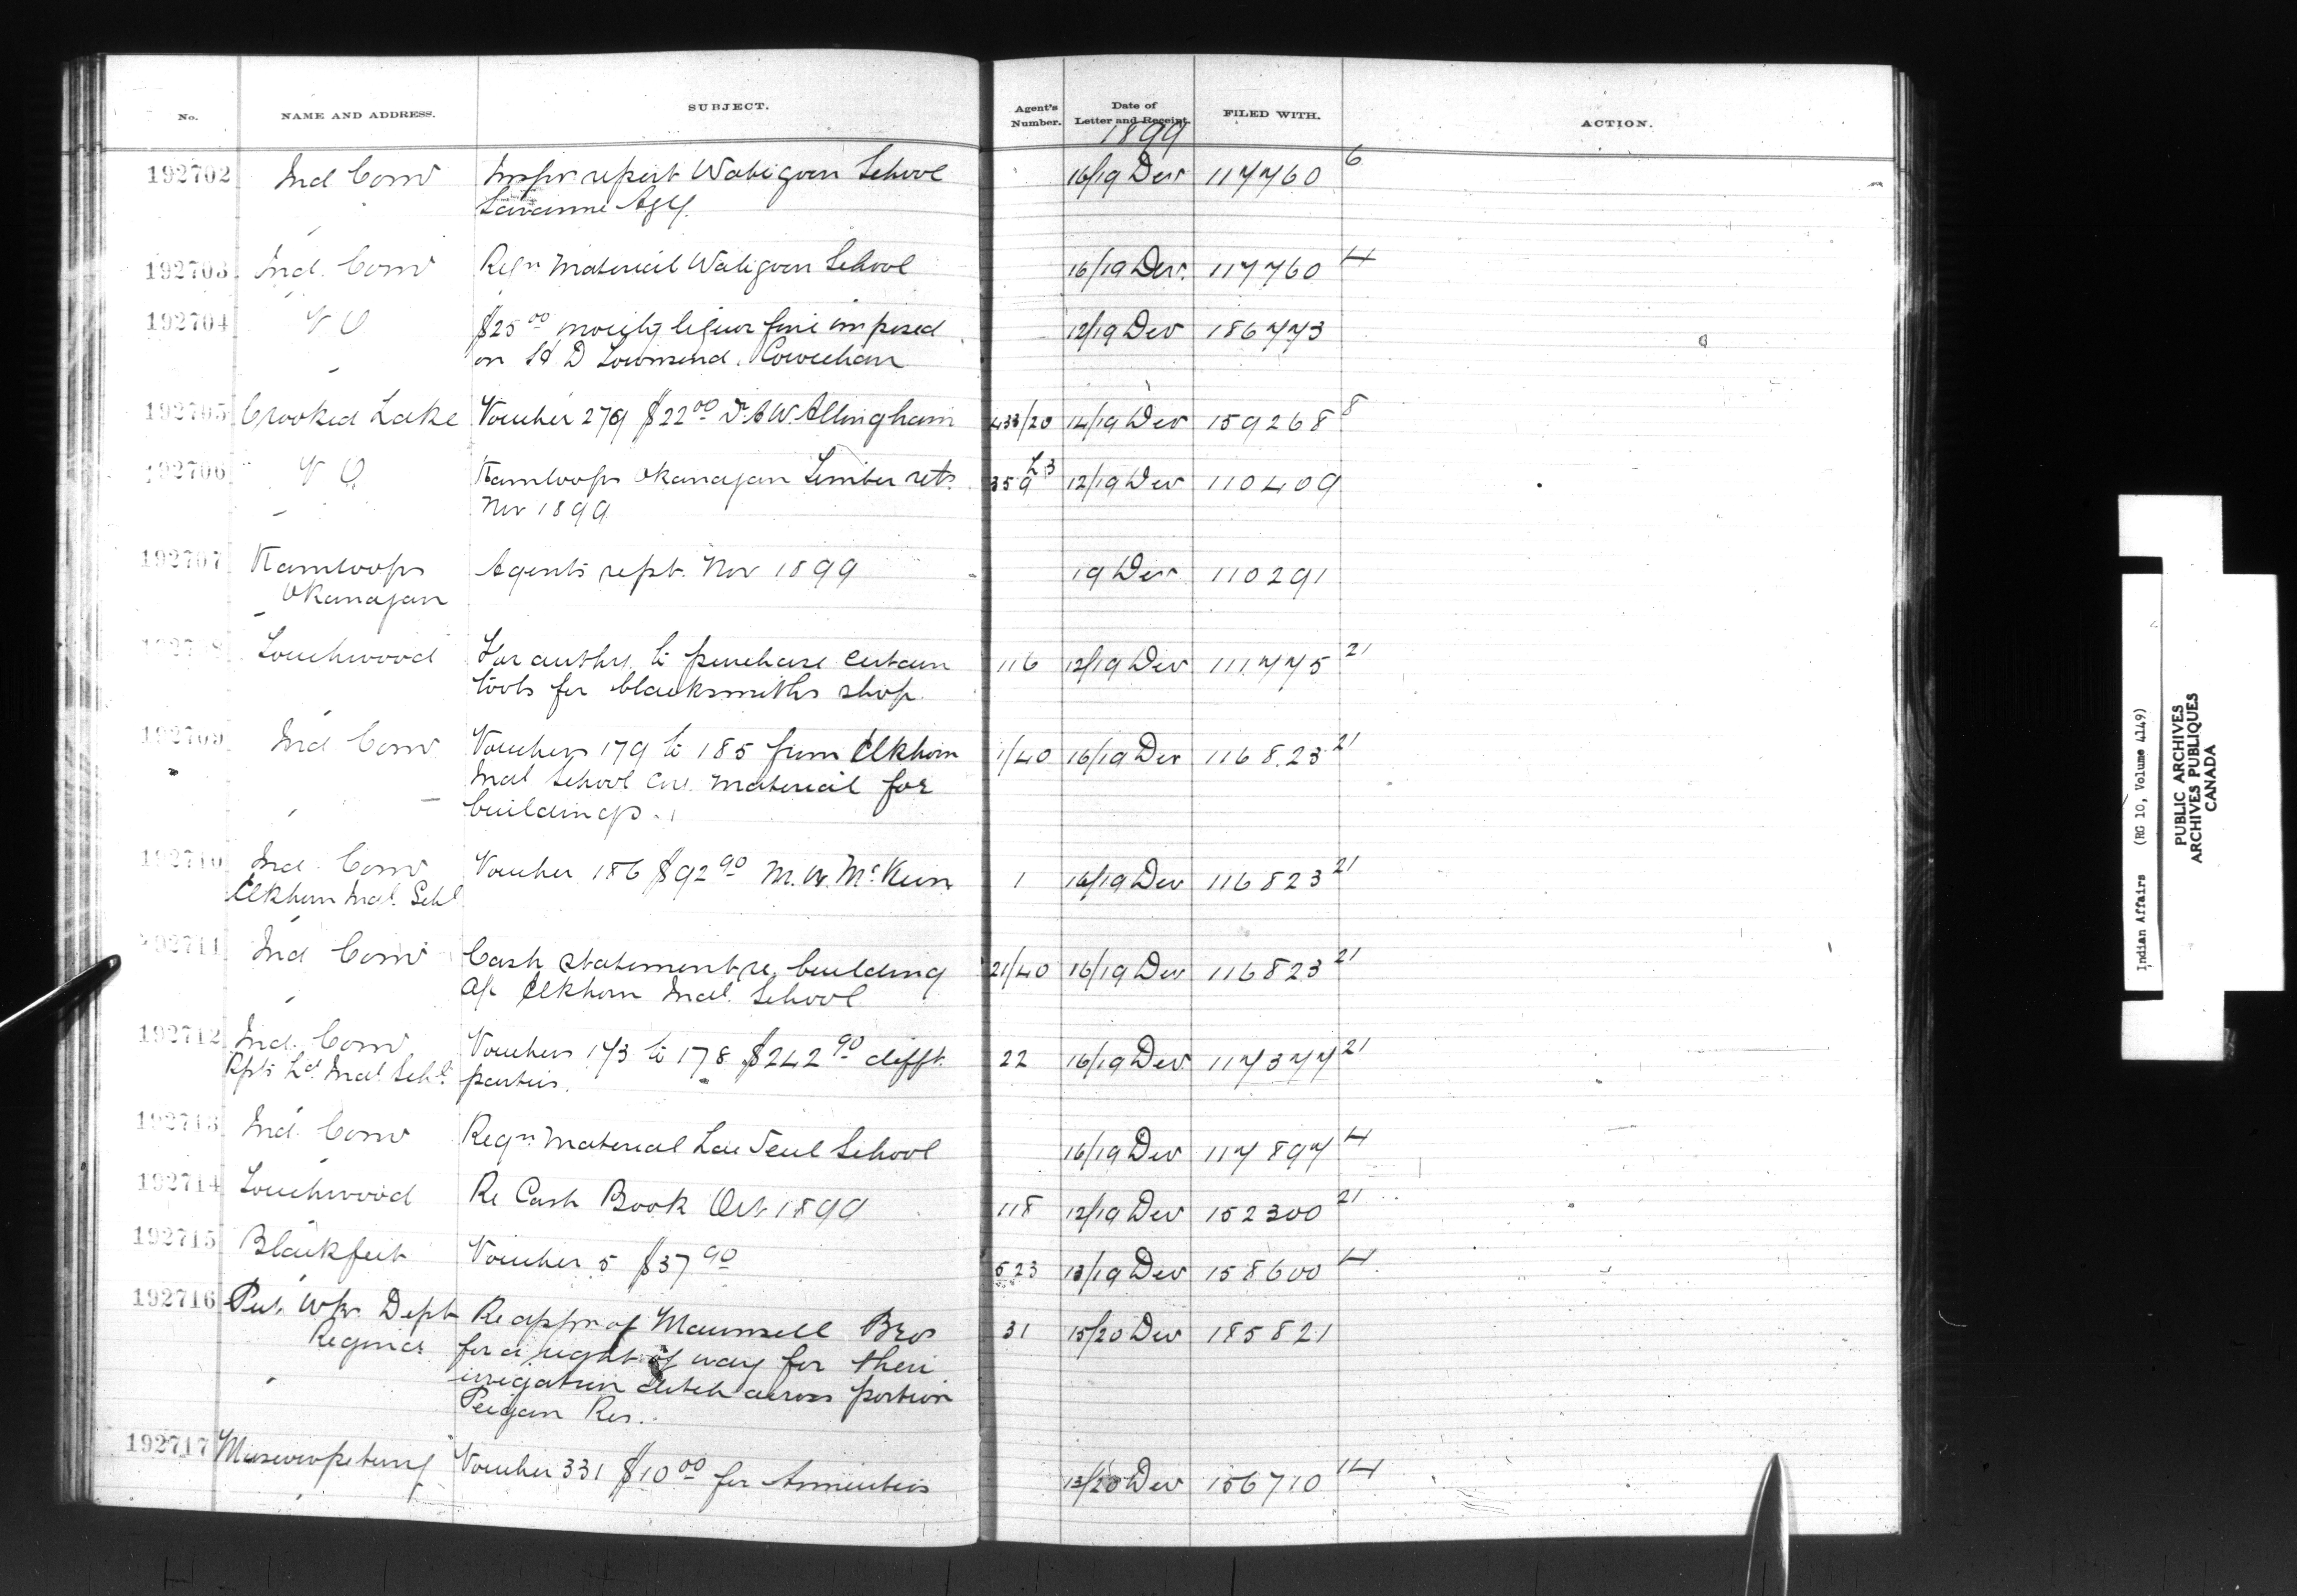 No. NAME AND ADDRESS. SUBJECT. Agent's Number. Date of Letter and Receipt. FILED WITH. ACTION.
1899
192702 Ind Comr Inspr report Wabigoon School 16/19 Decr 117760 6
Savanne Agy.
192703 Ind. Comr Reqn Material Wabigoon School 16/19 Decr. 117760 4
192704 V O $25 00 moiety liquor fine imposed 12/19 Decr 186773
on H D Townsend. Cowichan
192705 Crooked Lake Voucher 2769 $22 00 Dr. A W. Allingham 433/20 14/19 Decr 159268 8
192706 V O. Kamloops Okanagan Timber rets. 359 L3 12/19 Decr 110409
Nov 1899
192707 Kamloops Agents rept. Nov 1899 19 Decr 110291
Okanagan
Touchwood For authy. to purchase certain 116 12/19 Decr 111775 21
tools for blacksmiths shop.
192709 Ind Comr Vouchers 179 to 185 from Elkhorn 1/40 16/19 Decr 116823 21
Indl School material for
buildings.
192710 Ind. Comr Voucher 186 $92 90 M. W. McKeen 1 16/19 Decr 116823 21
Elkhorn Indl. Schl
192711 Ind Comr Cash statement re. building 21/40 16/19 Decr 116823 21
a/c Elkhorn Indl. School
192712 Ind. Comr Vouchers 173 to 178 $242 90 difft. 22 16/19 Decr 117377 21
Rpts Ld. Indl. Schl. parties.
192713 Ind. Comr Reqn Material Lac Seul School 16/19 Decr 117897 4
192714 Touchwood Re Cash Book Oct 1899 118 12/19 Decr 152300 21
192715 Blackfeet Voucher 5 $37 90 523 13/19 Decr 158600 4
192716 Pub. Wks. Dept Re appn of Maunsell Bros 31 15/20 Decr 185821
Regina for a right of way for their
irrigation ditch across portion
Peigan Res.
192717 Muscowpetung Voucher 331 $10 00 for Annuities 13/20 Decr 156710 14
Indian Affairs (RG 10, Volume 4149)
PUBLIC ARCHIVES
ARCHIVES PUBLIQUES
CANADA